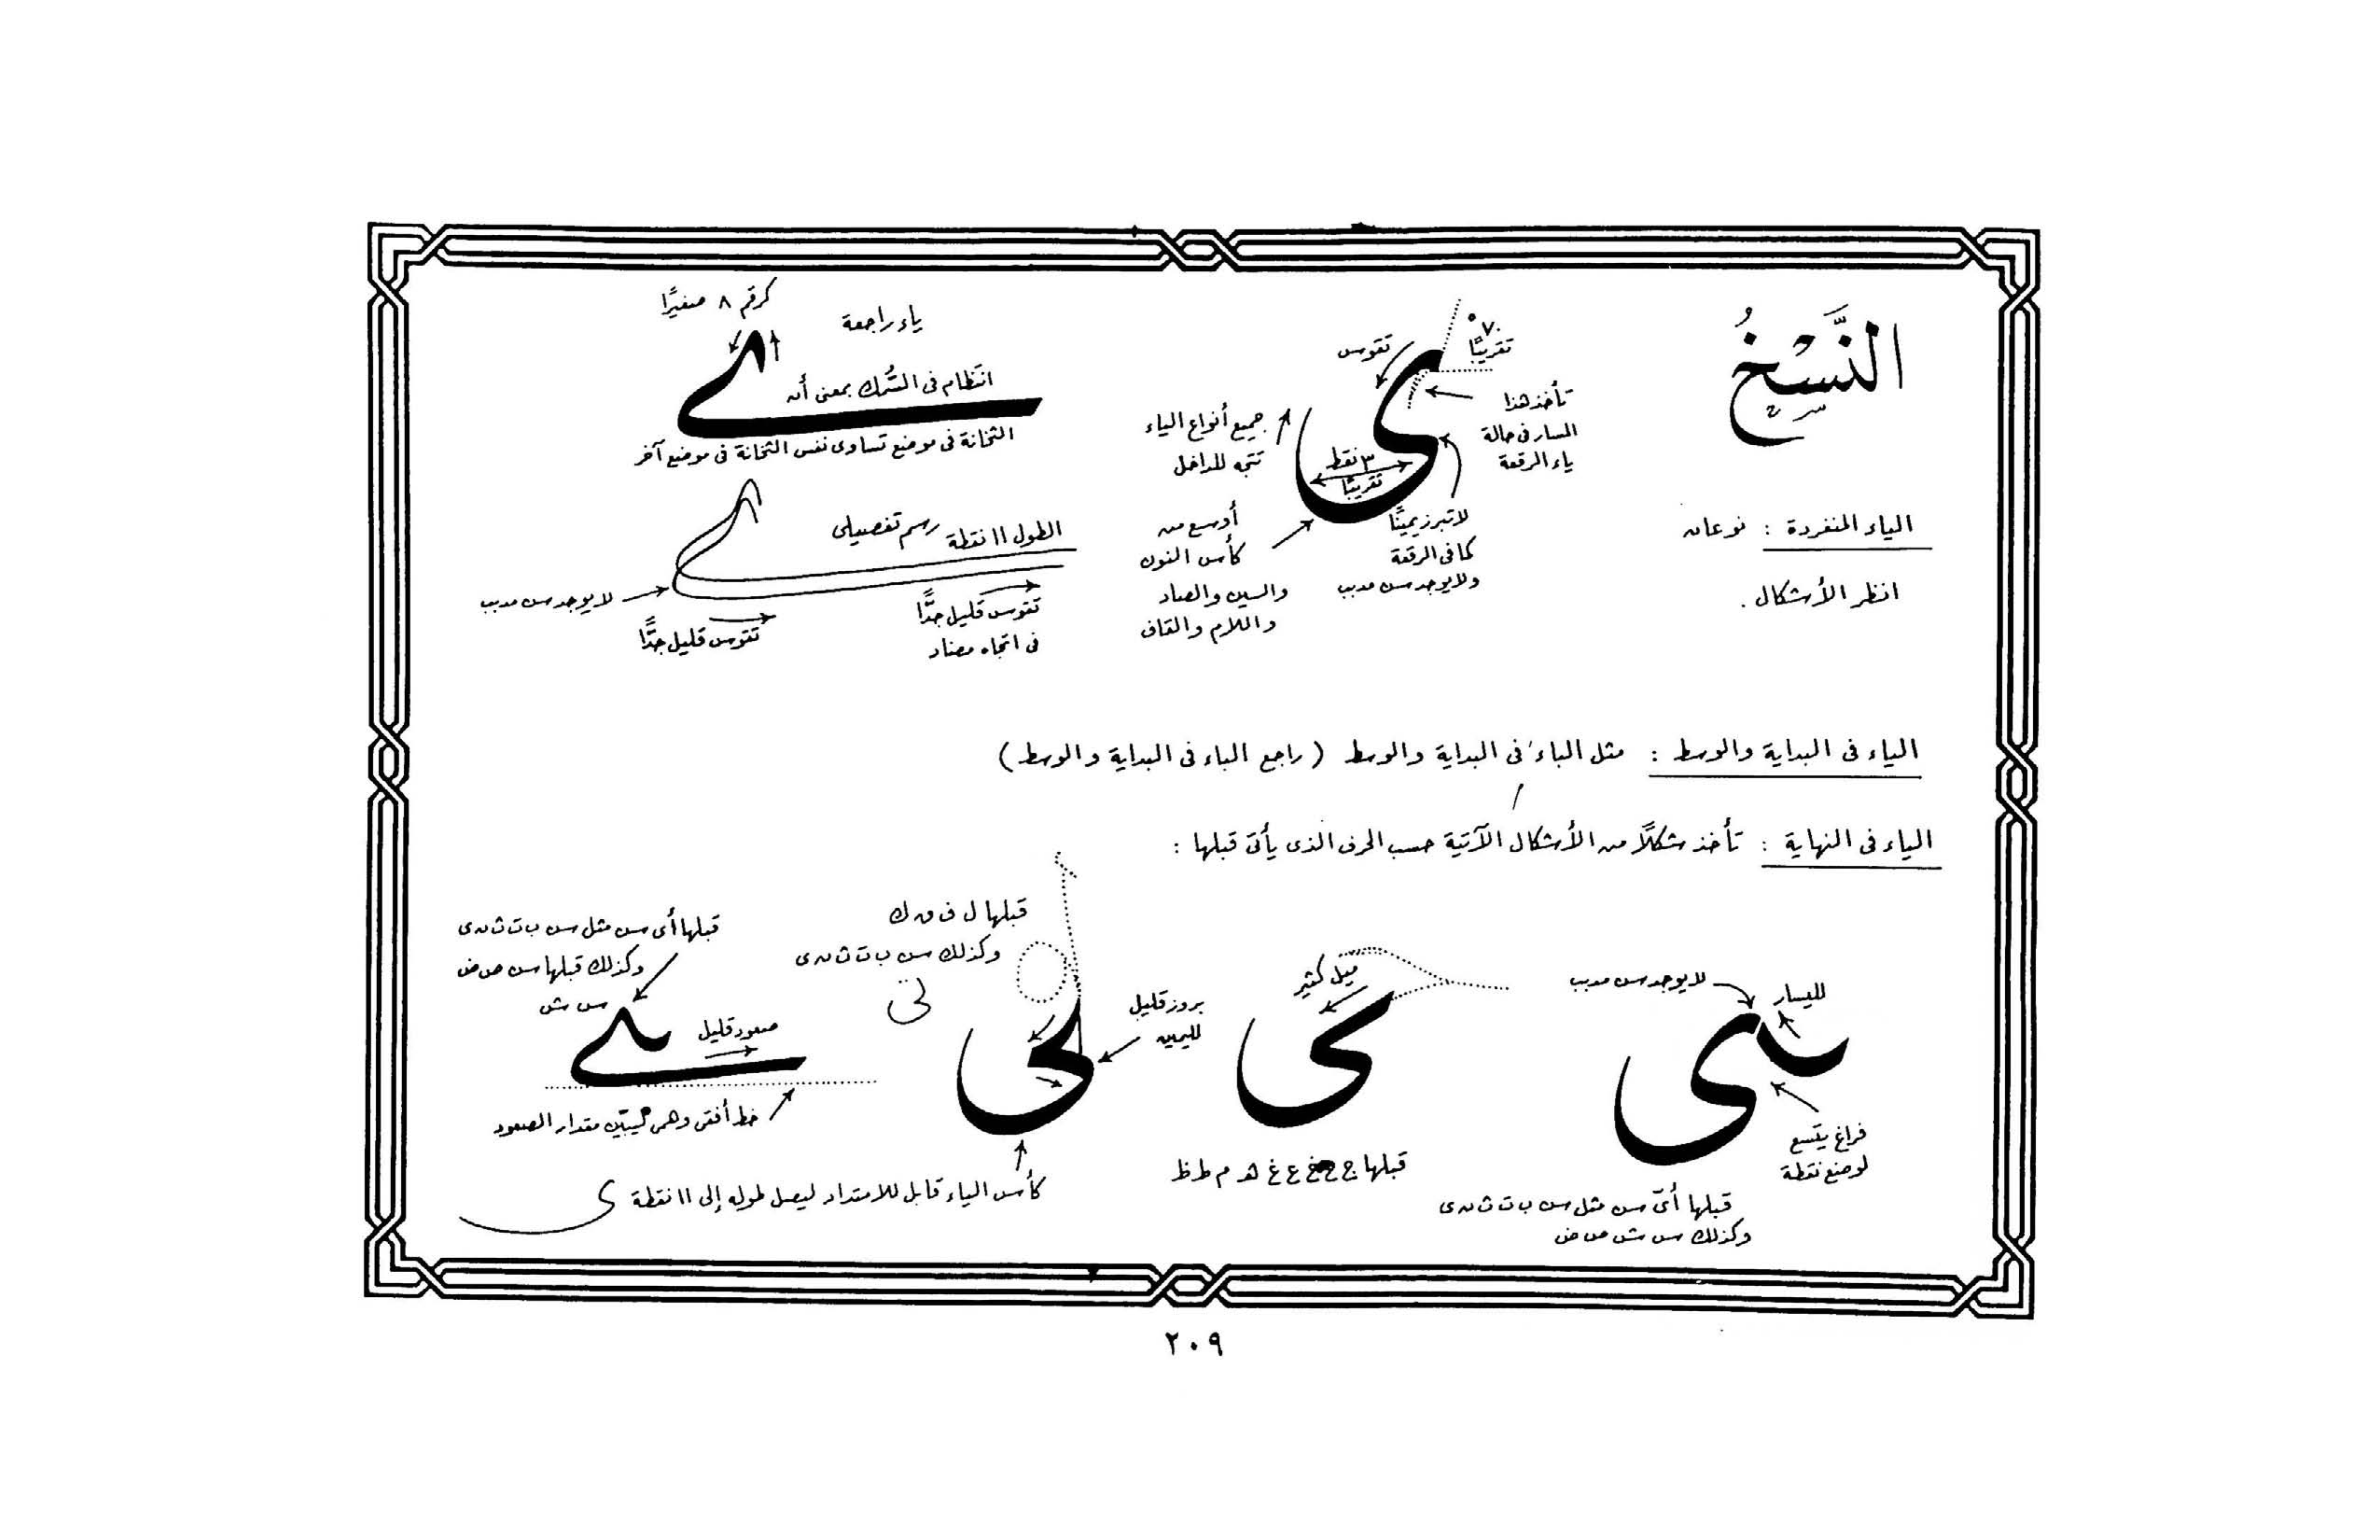 النَّسْخُ
الياء المنفردة : نوعان
انظر الأشكال .
٧٠°
تقريبًا
تقوس
تأخذ هذا
المسار فى حالة
ياء الرقعة
جميع أنواع الياء
تتجه للداخل
٣ نقط
تقريبًا
لا تبرز يمينًا
كما فى الرقعة
ولا يوجد سن مدبب
أوسع من
كأس النون
والسين والصاد
واللام والقاف
ياء راجعة
كرقم ٨ صغيرًا
انتظام فى السُّمك بمعنى أن
الثخانة فى موضع تساوى نفس الثخانة فى موضع آخر
رسم تفصيلى
الطول ١١ نقطة
لا يوجد سن مدبب
تقوس قليل جدًّا
تقوس قليل جدًّا
فى اتجاه مضاد
الياء فى البداية والوسط : مثل الباء فى البداية والوسط ( راجع الباء فى البداية والوسط )
الياء فى النهاية : تأخذ شكلًا من الأشكال الآتية حسب الحرف الذى يأتى قبلها :
لا يوجد سن مدبب
لليسار
فراغ يتسع
لوضع نقطة
قبلها أىّ سن مثل سن ب ت ث ن ى
وكذلك س ش ص ض
ميل كثير
قبلها ج ح خ ع غ هـ م ط ظ
قبلها ل ف ق ك
وكذلك سن ب ت ث ن ى
بروز قليل
لليمين
كأس الياء قابل للامتداد ليصل طوله إلى ١١ نقطة
قبلها أى سن مثل سن ب ت ث ن ى
وكذلك قبلها سن ص ض
س ش
صعود قليل
خط أفقى وهمى ليبيّن مقدار الصعود
٢٠٩